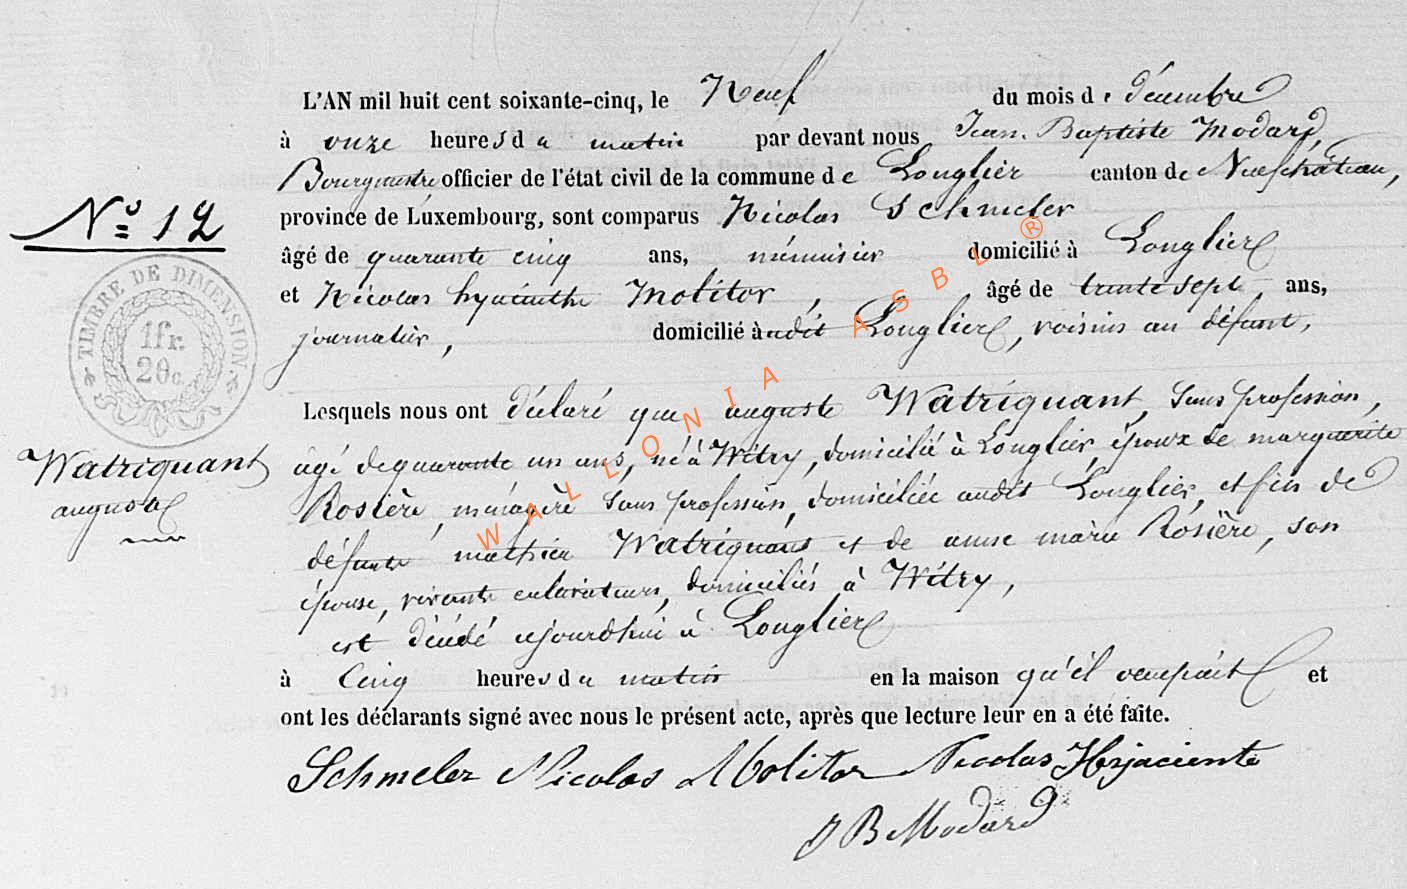 L'AN mil huit cent soixante-cinq, le Neuf du mois de décembre
à onze heures du matin par devant nous Jean-Baptiste Modard,
Bourgmestre officier de l'état civil de la commune de Longlier canton de Neufchâteau,
province de Luxembourg, sont comparus Nicolas Schmeler
N° 12
âgé de quarante cinq ans, ménuisier domicilié à Longlier
et Nicolas hyacinthe Molitor, âgé de trente sept ans,
journalier, domicilié à audit Longlier, voisins au défunt,
TIMBRE DE DIMENSION.
1 fr.
20 c.
Lesquels nous ont déclaré que auguste Watriquant, sans profession,
âgé de quarante un ans, né à Witry, domicilié à Longlier, époux de marguerite
Watriquant
auguste
Rosière, ménagère sans profession, domiciliée audit Longlier, et fils de
défunts mathieu Watriquant et de anne marie Rosière, son
épouse, vivants cultivateurs, domiciliés à Witry,
est décédé aujourdhui à Longlier
à Cinq heures du matin en la maison qu'il occupait et
ont les déclarants signé avec nous le présent acte, après que lecture leur en a été faite.
Schmeler Nicolas Molitor Nicolas Hyjaciente
J B Modard
WALLONIA ASBL ®